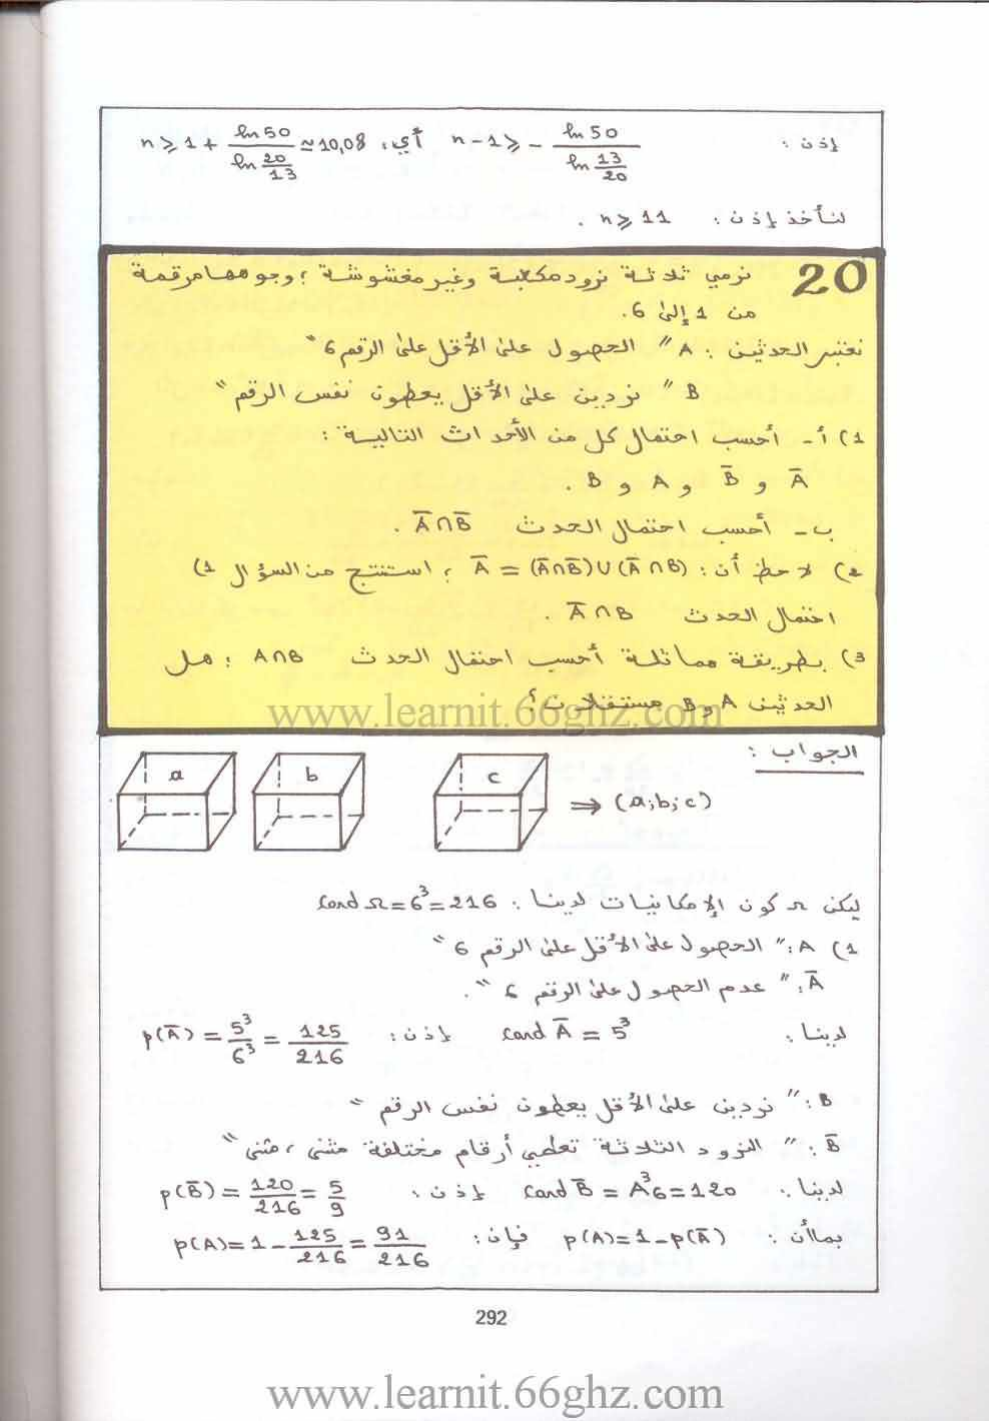 إذن : n-1 ≥ - ln 50 / ln 13/20 أي : n ≥ 1 + ln 50 / ln 20/13 ≃ 10,08
لنأخذ إذن : n ≥ 11 .
20 نرمي ثلاثة نرود مكعبة وغير مغشوشة ؛ وجوهها مرقمة
من 1 إلى 6.
نعتبر الحدثين : A " الحصول على الأقل على الرقم 6 "
B " نردين على الأقل يعطون نفس الرقم "
1) أ - أحسب احتمال كل من الأحداث التالية :
Ā و B̄ و A و B .
ب - أحسب احتمال الحدث Ā∩B̄ .
2) لاحظ أن : Ā = (Ā∩B̄)∪(Ā∩B) ، استنتج من السؤال 1)
احتمال الحدث Ā∩B .
3) بطريقة مماثلة أحسب احتمال الحدث A∩B ؛ هل
الحدثين A و B مستقلان ؟
www.learnit.66ghz.com
الجواب :
a b c ⇒ (a;b;c)
ليكن Ω كون الإمكانيات لدينا : card Ω = 6³ = 216
1) A : " الحصول على الأقل على الرقم 6 "
Ā : " عدم الحصول على الرقم 6 " .
لدينا : card Ā = 5³ إذن : p(Ā) = 5³/6³ = 125/216
B : " نردين على الأقل يعطون نفس الرقم "
B̄ : " النرود الثلاثة تعطي أرقام مختلفة مثنى ، مثنى "
لدينا : card B̄ = A³₆ = 120 إذن : p(B̄) = 120/216 = 5/9
بما أن : p(A) = 1 - p(Ā) فإن : p(A) = 1 - 125/216 = 91/216
292
www.learnit.66ghz.com